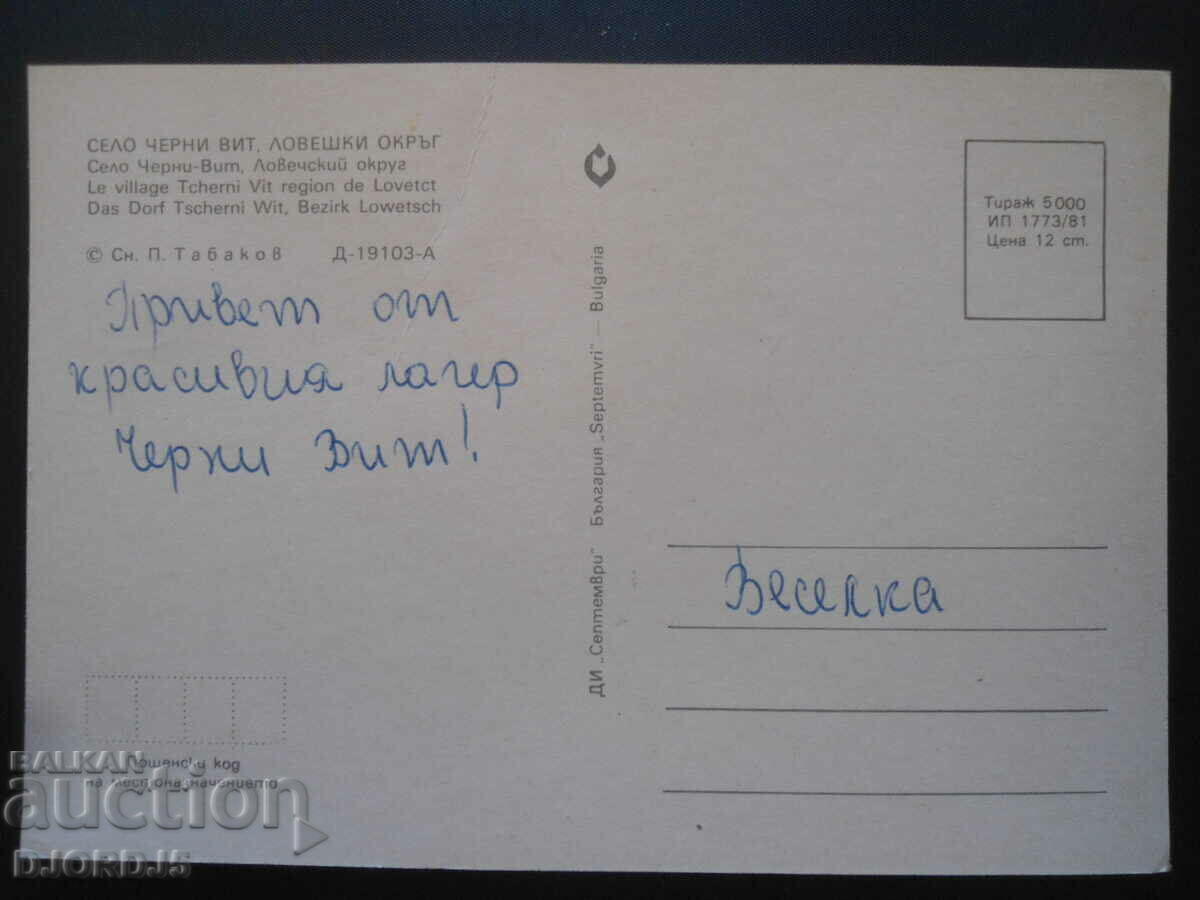 СЕЛО ЧЕРНИ ВИТ, ЛОВЕШКИ ОКРЪГ
Село Черни-Вит, Ловечский округ
Le village Tcherni Vit region de Lovetct
Das Dorf Tscherni Wit, Bezirk Lowetsch
© Сн. П. Табаков Д-19103-А
Привет от
красивия лагер
Черни Вит!
Пощенски код
на местоназначението
ДИ „Септември" България „Septemvri" — Bulgaria
Тираж 5000
ИП 1773/81
Цена 12 ст.
Веселка
BALKAN
auction
DJORDJ5